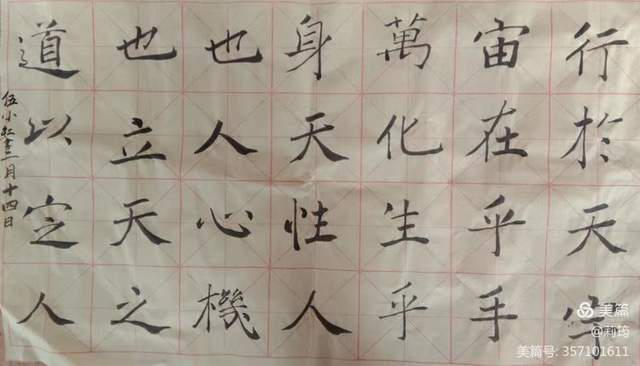 行於天宇
宙在乎手
萬化生乎
身天性人
也人心機
也立天之
道以定人
伍小紅書三月十四日
美篇
美篇号: 357101611